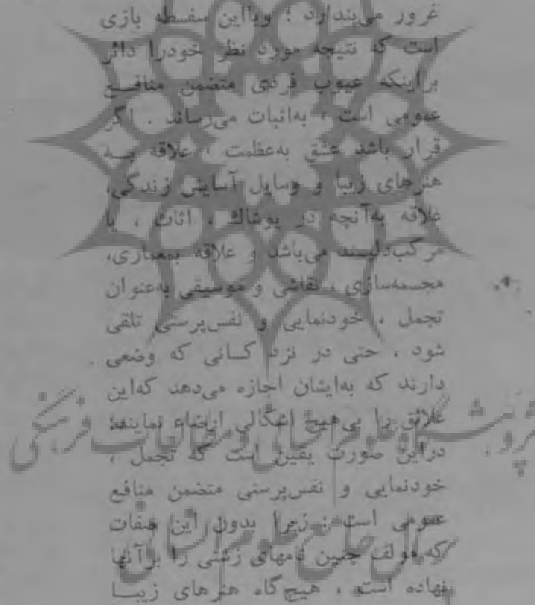 غرور می‌پندارد ؛ وبااین سفسطه بازی
است که نتیجه مورد نظر خودرا دائر
براینکه عیوب فردی متضمن منافع
عمومی است ، به‌اثبات می‌رساند . اگر
قرار باشد عشق به‌عظمت ، علاقه بــه
هنرهای زیبا و وسایل آسایش زندگی،
علاقه به‌آنچه در پوشاك ، اثاث ، یا
مرکب‌دلپسند می‌باشد و علاقه بمعماری،
مجسمه‌سازی ، نقاشی و موسیقی به‌عنوان
تجمل ، خودنمایی و نفس‌پرستی تلقی
شود ، حتی در نزد کسانی که وضعی
دارند که به‌ایشان اجازه می‌دهد که‌این
علائق را بی‌هیچ اشکالی ارضاء نمایند؛
دراین صورت یقین است که تجمل ،
خودنمایی و نفس‌پرستی متضمن منافع
عمومی است ؛ زیرا بدون این صفات
که مولف چنین نامهای زشتی را برآنها
نهاده است ، هیچ‌گاه هنرهای زیبــا
پژوهشگاه علوم انسانی و مطالعات فرهنگی
پرتال جامع علوم انسانی